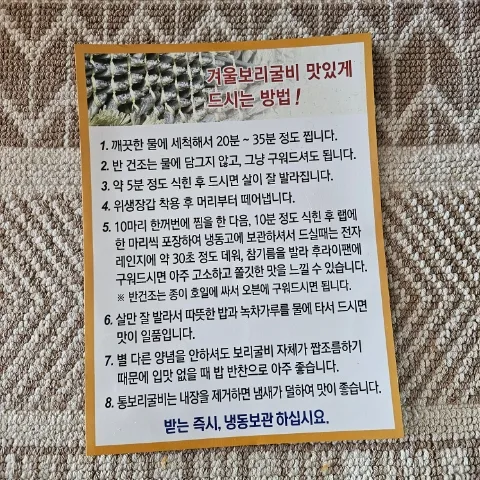 겨울보리굴비 맛있게
드시는 방법!
1. 깨끗한 물에 세척해서 20분 ~ 35분 정도 찝니다.
2. 반 건조는 물에 담그지 않고, 그냥 구워드셔도 됩니다.
3. 약 5분 정도 식힌 후 드시면 살이 잘 발라집니다.
4. 위생장갑 착용 후 머리부터 떼어냅니다.
5. 10마리 한꺼번에 찜을 한 다음, 10분 정도 식힌 후 랩에
한 마리씩 포장하여 냉동고에 보관하셔서 드실때는 전자
레인지에 약 30초 정도 데워, 참기름을 발라 후라이팬에
구워드시면 아주 고소하고 쫄깃한 맛을 느낄 수 있습니다.
※ 반건조는 종이 호일에 싸서 오븐에 구워드시면 됩니다.
6. 살만 잘 발라서 따뜻한 밥과 녹차가루를 물에 타서 드시면
맛이 일품입니다.
7. 별 다른 양념을 안하셔도 보리굴비 자체가 짭조름하기
때문에 입맛 없을 때 밥 반찬으로 아주 좋습니다.
8. 통보리굴비는 내장을 제거하면 냄새가 덜하여 맛이 좋습니다.
받는 즉시, 냉동보관 하십시요.